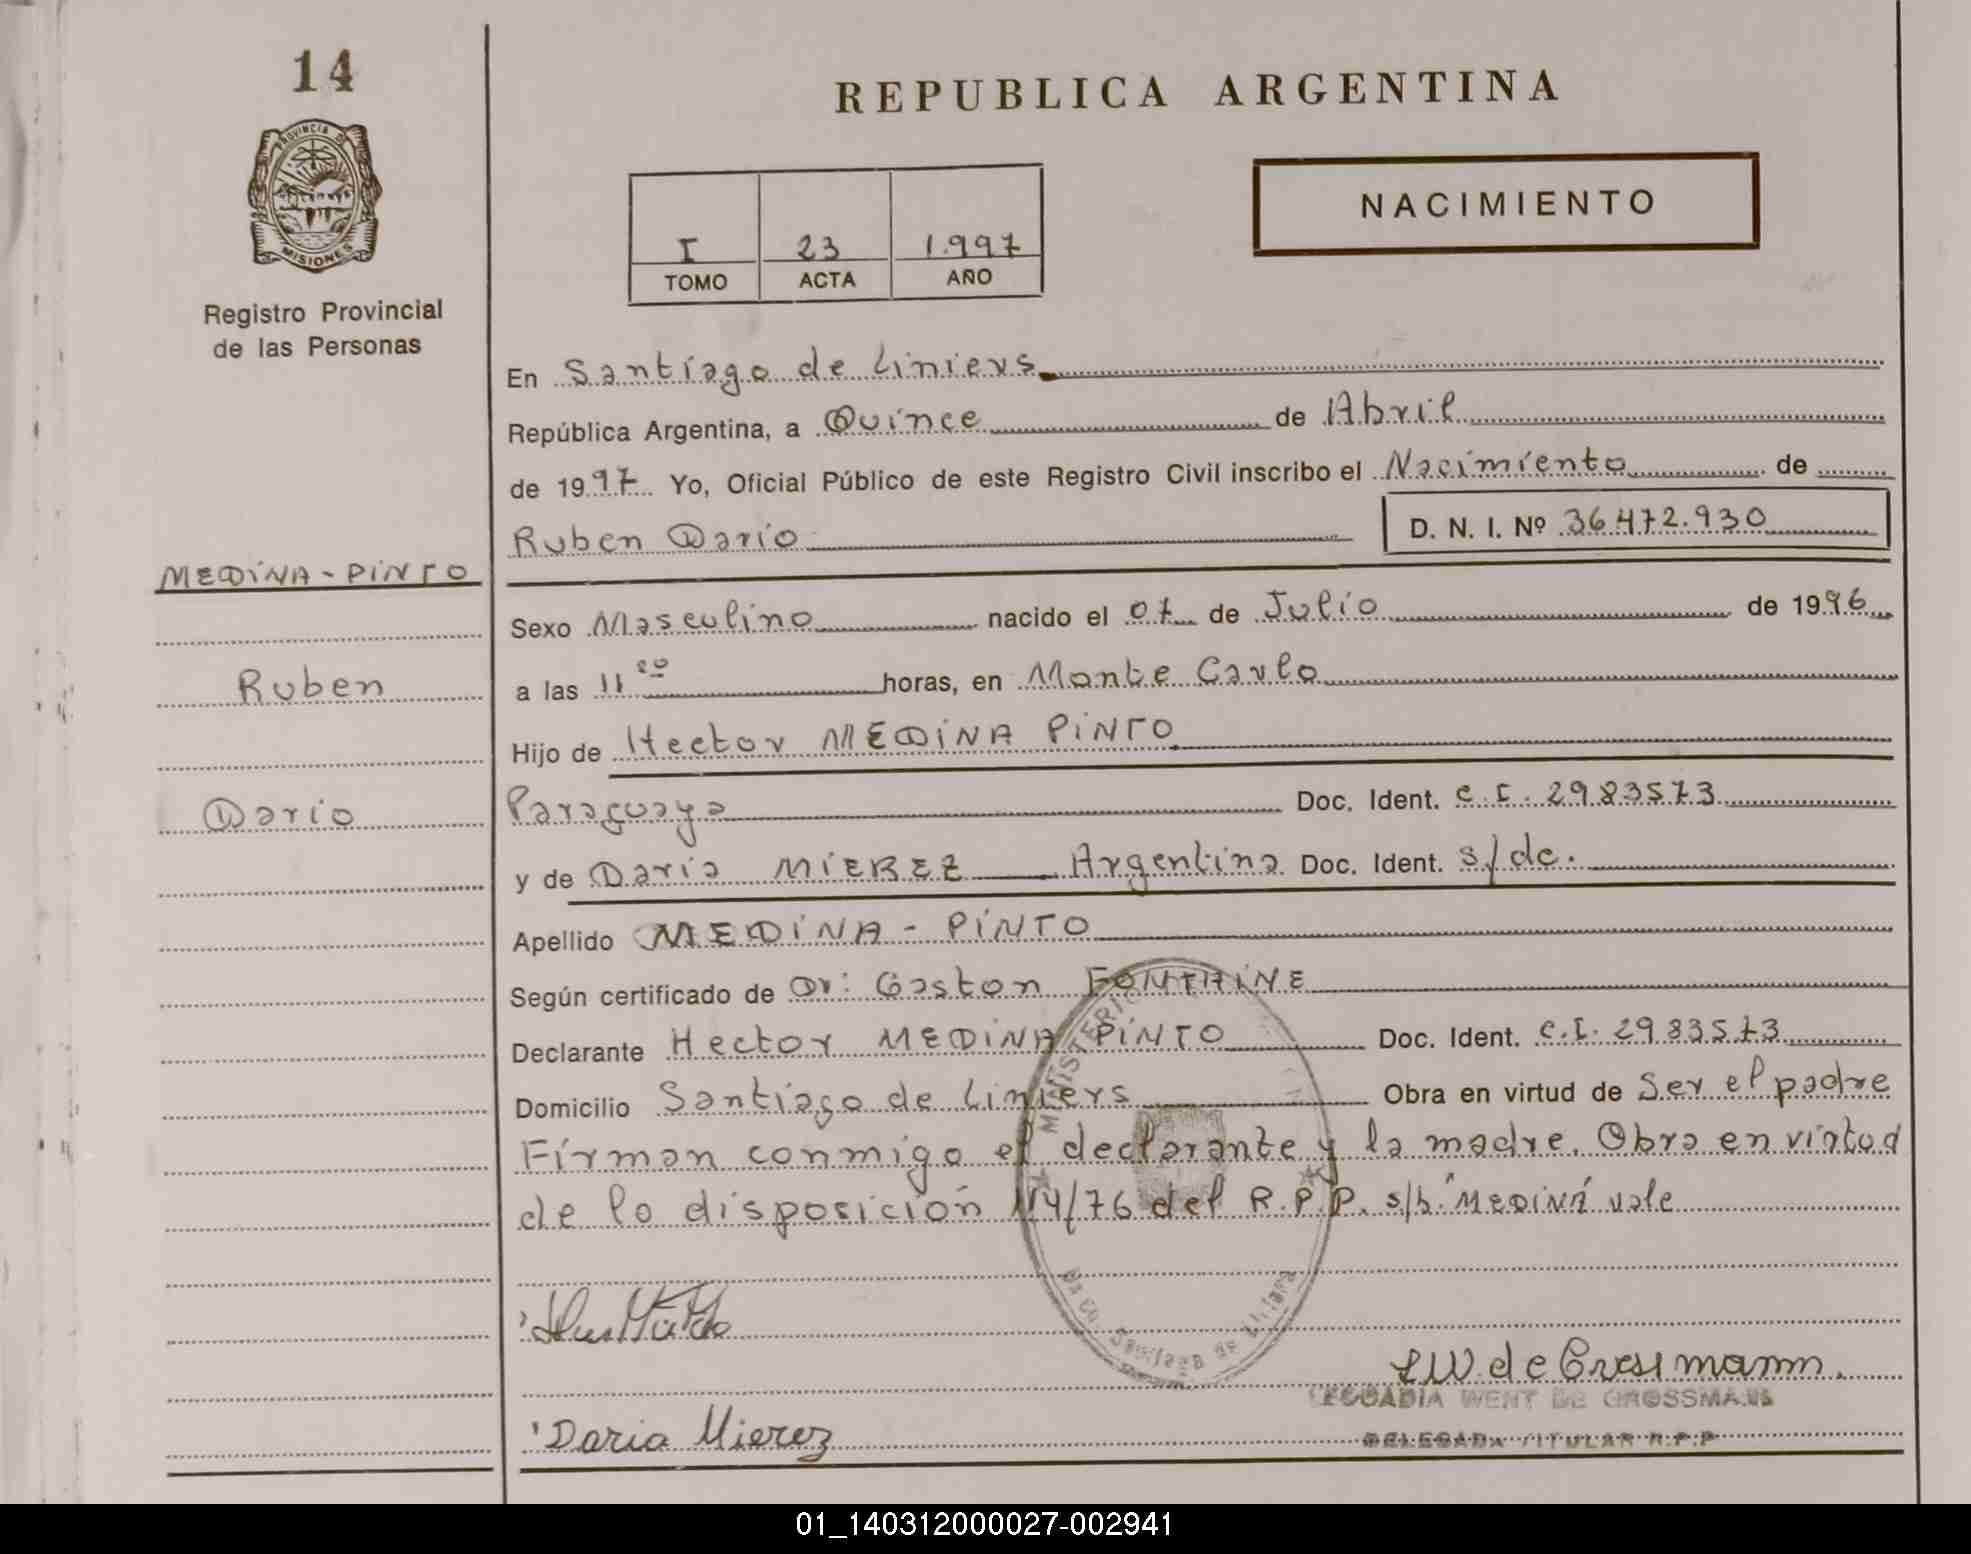 14
PROVINCIA DE
MISIONES
Registro Provincial
de las Personas
REPUBLICA ARGENTINA
I 23 1.997
TOMO ACTA AÑO
NACIMIENTO
En Santiago de Liniers
República Argentina, a Quince de Abril
de 1997 Yo, Oficial Público de este Registro Civil inscribo el Nacimiento de
Ruben Dario D. N. I. Nº 36.472.930
MEDINA - PINTO
Ruben
Dario
Sexo Masculino nacido el 07 de Julio de 1996
a las 11 20 horas, en Monte Carlo
Hijo de Hector MEDINA PINTO
Paraguaya Doc. Ident. C.I. 2983573
y de Daria MIEREZ Argentina Doc. Ident. s/dc.
Apellido MEDINA - PINTO
Según certificado de Dr: Gaston FONTAINE
Declarante Hector MEDINA PINTO Doc. Ident. C.I. 2983573
Domicilio Santiago de Liniers Obra en virtud de Ser el padre
Firman conmigo el declarante y la madre. Obra en virtud
de la disposición 114/76 del R.P.P. s/b. "MEDINA" vale
MINISTERIO
Santiago de Liniers
LW de Grossmann.
LEOCADIA WENT DE GROSSMANN
DELEGADA TITULAR R.P.P
Daria Mierez
01_140312000027-002941